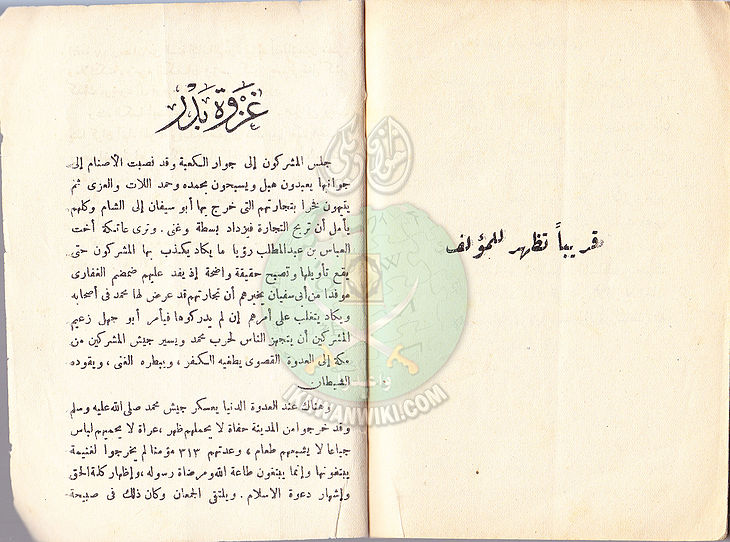 غزوة بدر
جلس المشركون إلى جوار الكعبة وقد نصبت الأصنام إلى
جوانبها يعبدون هبل ويسبحون بمحمده وحمد اللات والعزى ثم
يتيهون فخرا بتجارتهم التى خرج بها أبو سفيان إلى الشام وكلهم
يأمل أن تربح التجارة فيزداد بسطة وغنى . وترى عاتكة أخت
العباس بن عبدالمطلب رؤيا ما يكاد يكذب بها المشركون حتى
يقع تأويلها وتصبح حقيقة واضحة إذ يفد عليهم ضمضم الغفارى
موفدا من أبى سفيان يخبرهم أن تجارتهم قد عرض لها محمد فى أصحابه
ويكاد يتغلب على أمرهم إن لم يدركوها فيأمر أبو جهل زعيم
المشركين أن يتجهز الناس لحرب محمد ويسير جيش المشركين من
مكة إلى العدوة القصوى يطغيه الكفر ، ويبطره الغنى ، ويقوده
الشيطان .
وهناك عند العدوة الدنيا يعسكر جيش محمد صلى الله عليه وسلم
وقد خرجوا من المدينة حفاة لا يحملهم ظهر ، عراة لا يحميهم لباس
جياعا لا يشبعهم طعام ، وعدتهم ٣١٣ مؤمنا لم يخرجوا لغنيمة
يبتغونها وإنما يبتغون طاعة الله ومرضاة رسوله ، وإظهار كلمة الحق
وإشهار دعوة الاسلام . ويلتقى الجمعان وكان ذلك فى صبيحة
قريباً تظهر للمؤلف
IKHWANWIKI.COM